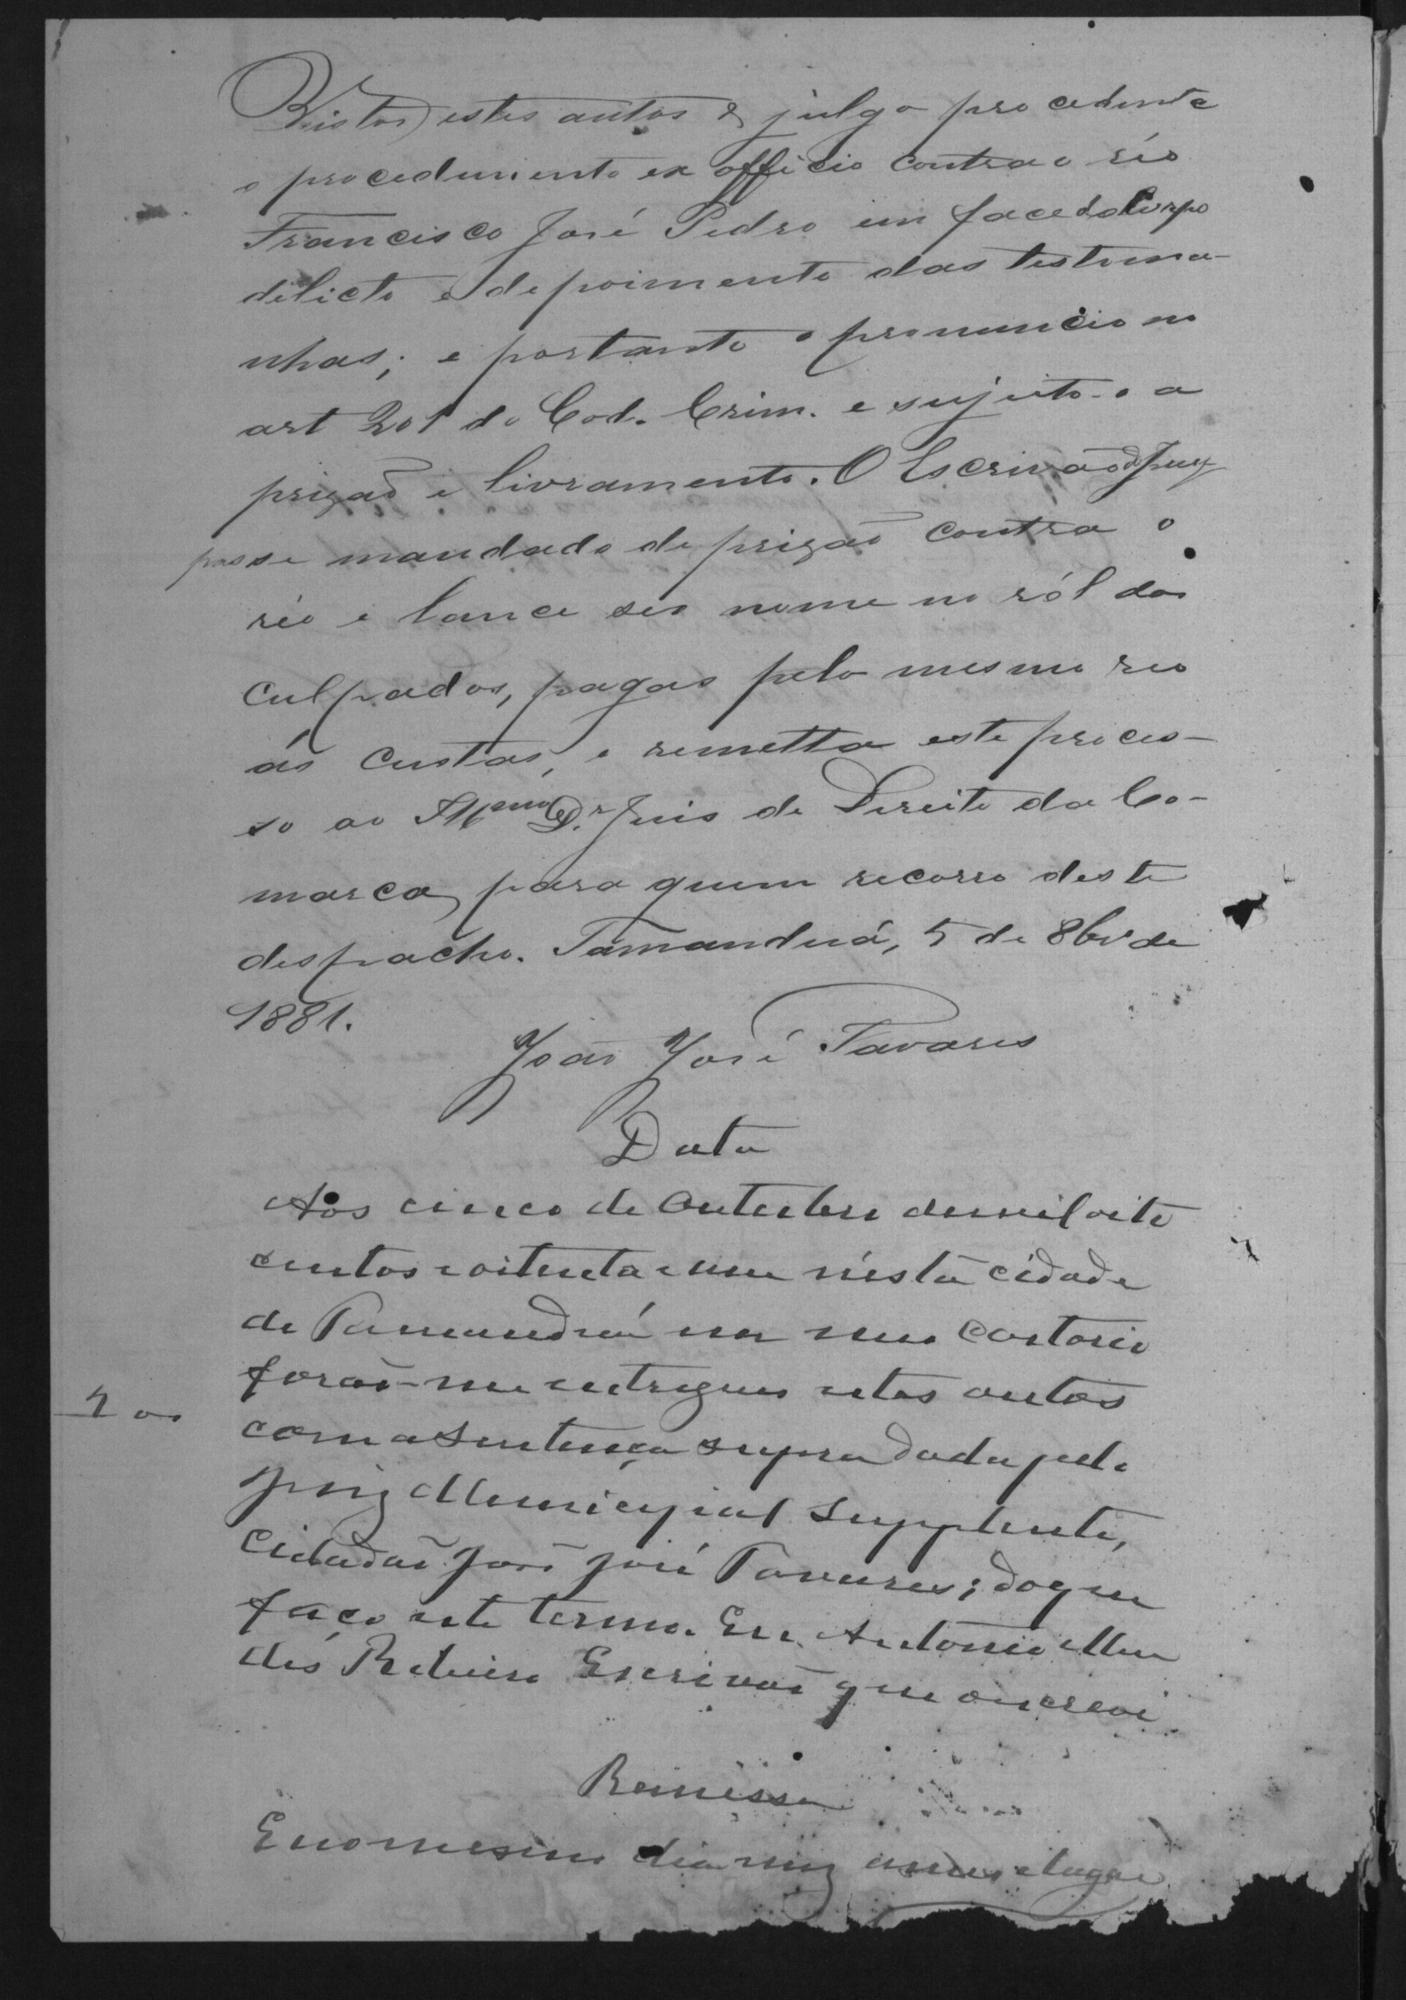 Vistos estes autos & julgo procedente
o procedimento ex officio contra o réo
Francisco José Pedro em face do Corpo
delicto e depoimento das testemu-
nhas; e portanto o pronuncio no
art 201 do Cod. Crim. e sujeito-o a
prizaõ e livramento. O Escrivaõ
passe mandado de prizaõ contra o
réo e lance seo nome no ról dos
culpados, pagas pelo mesmo reo
ás custas, e remetta este proces-
so ao Illmo Dr. Juis de Direito da Co-
marca, para quem recorro deste
despacho. Tamanduá, 5 de 8bro de
1881.
João José Tavares
Data
Aos cinco de Outubro de mil oito
centos e oitenta e um n'esta cidade
de Tamanduá em meu cartorio
foraõ-me entregues estes autos
com a Sentença supra dada pelo
Juiz Municipal Supplente,
Cidadaõ Joaõ José Tavares; do que
faço este termo. Eu Antonio Men
des Ribeiro Escrivaõ que o escrevi
Remessa
E no mesmo dia mez anno e lugar